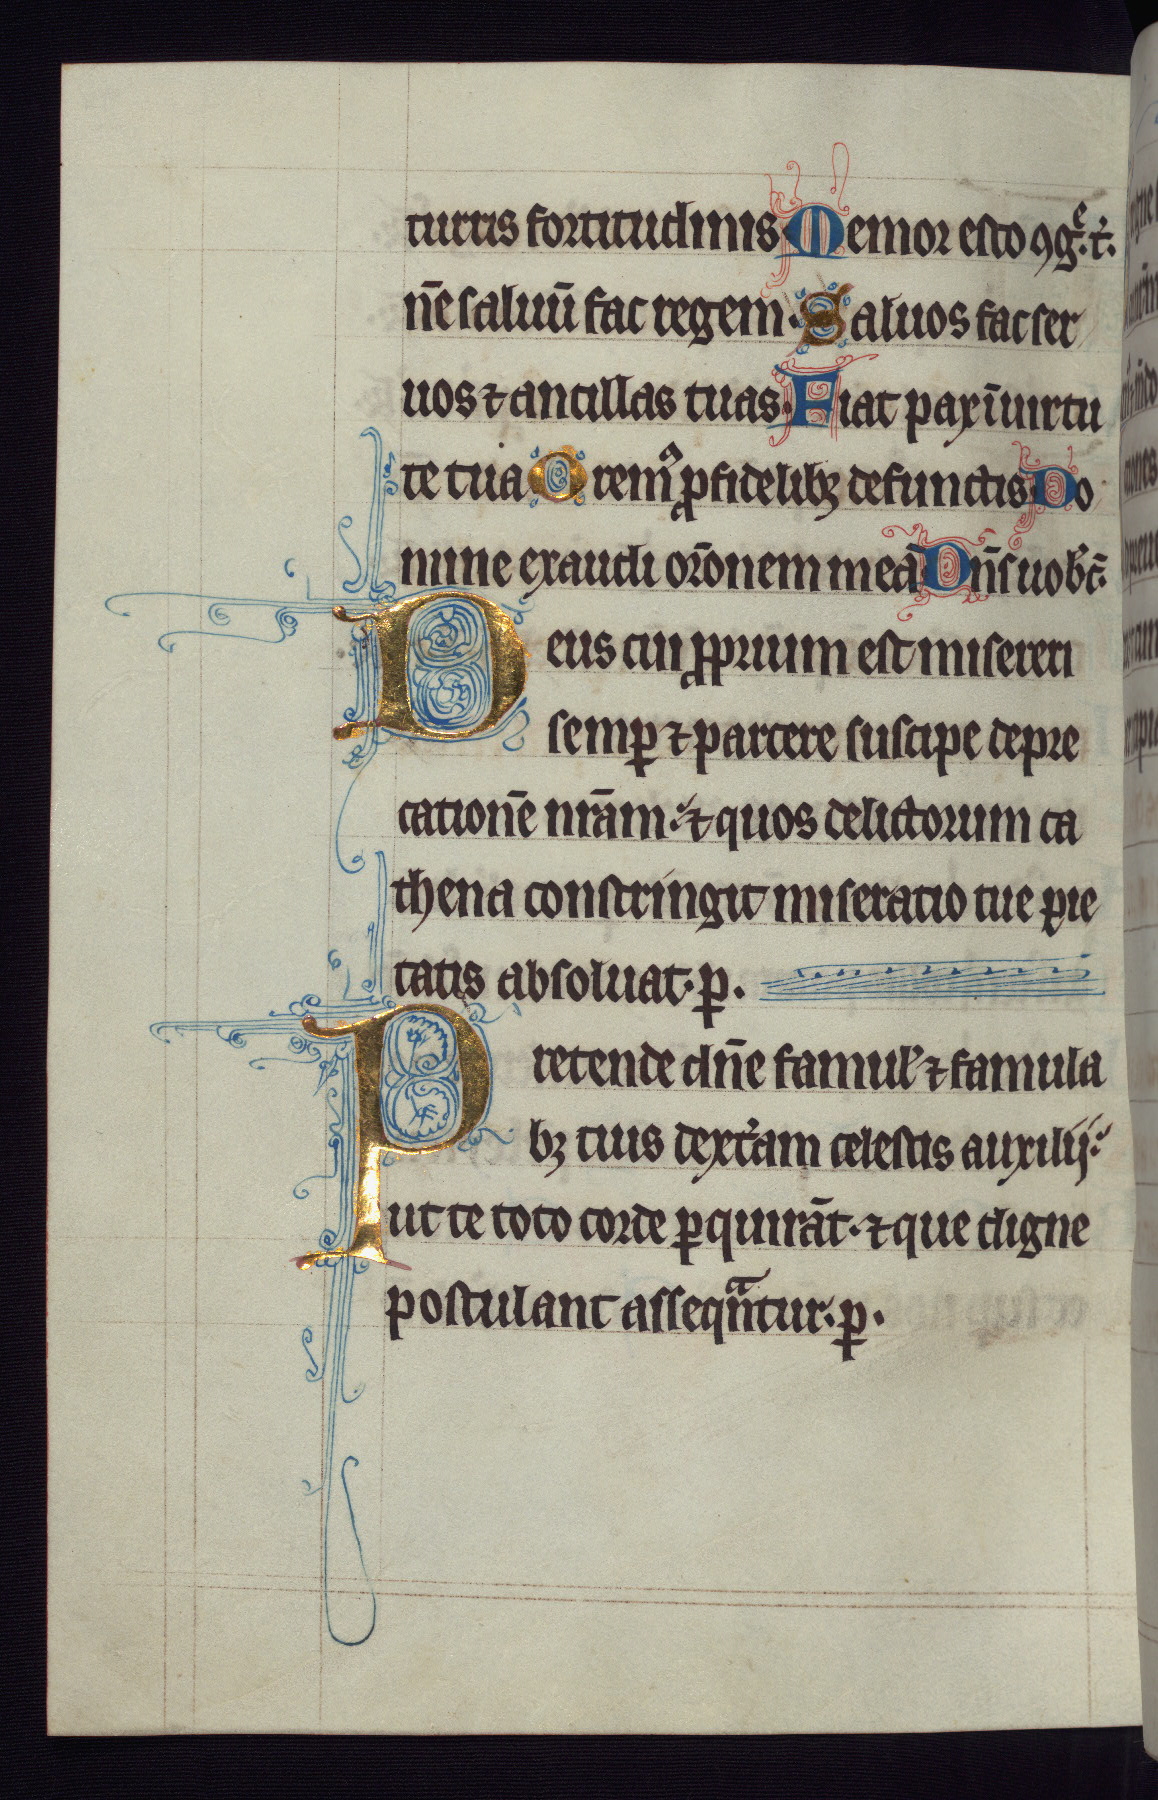 turris fortitudinis Memor esto ꝯgᵉ. t̉.
n̄e saluū fac regem. Saluos fac ser
uos ⁊ ancillas tuas. Fiat pax ī uirtu
te tua Oremꝰ ꝓ fidelibꝫ defunctis Do
mine exaudi or̄onem meā Dn̄s uob̉c̄.
Deus cui ꝓprium est misereri
semꝑ ⁊ parcere suscipe depre
cationē nrām. ⁊ quos delictorum ca
thena constringit miseratio tue pie
tatis absoluat. ꝑ.
Pretende dn̄e famul̉ ⁊ famula
bꝫ tuis dext̉am celestis auxilij.
ut te toto corde ꝑquirāt. ⁊ que digne
postulant asseqᵃntur. ꝑ.